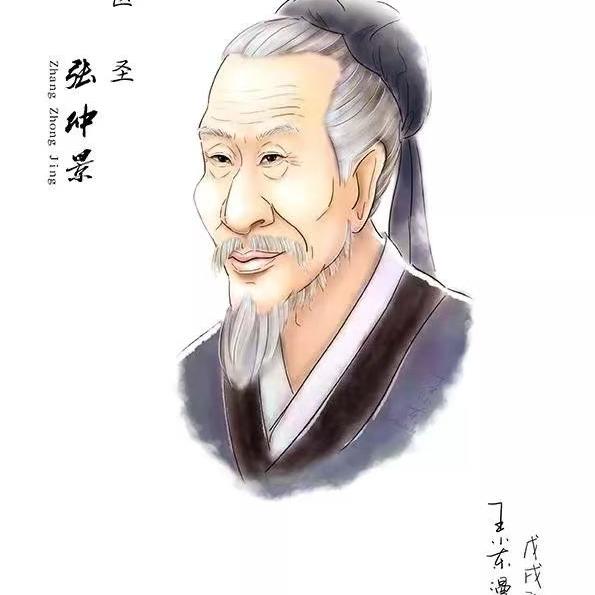 医圣
张仲景
Zhang Zhong Jing
戊戌
王小东漫